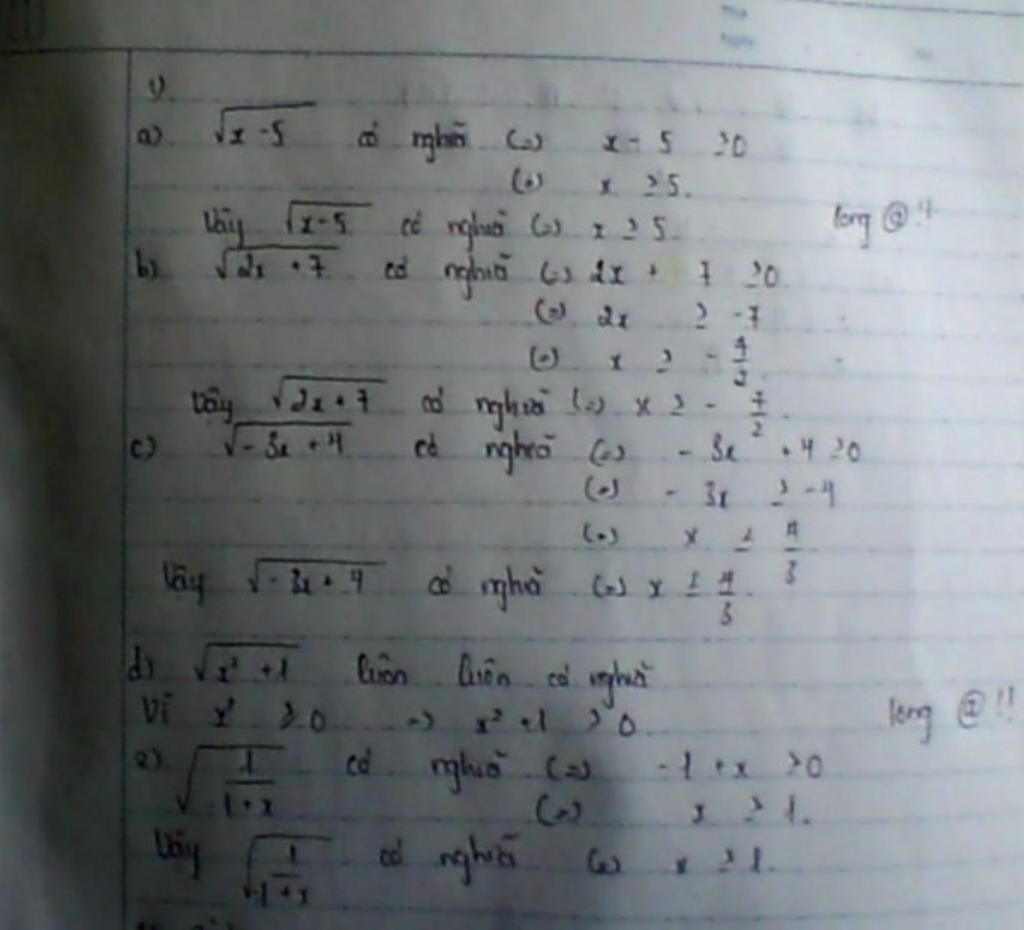 1)
a) √(x - 5) có nghĩa (=) x - 5 ≥ 0
(=) x ≥ 5.
Vậy √(x - 5) có nghĩa (=) x ≥ 5. long @!!
b) √(2x + 7) có nghĩa (=) 2x + 7 ≥ 0
(=) 2x ≥ -7
(=) x ≥ - 7/2
Vậy √(2x + 7) có nghĩa (=) x ≥ - 7/2.
c) √(-3x + 4) có nghĩa (=) - 3x + 4 ≥ 0
(=) - 3x ≥ -4
(=) x ≤ 4/3
Vậy √(-3x + 4) có nghĩa (=) x ≤ 4/3.
d) √(x² + 1) luôn luôn có nghĩa
Vì x² ≥ 0 => x² + 1 > 0. long @!!
e) √(1/(-1 + x)) có nghĩa (=) -1 + x > 0
(=) x > 1.
Vậy √(1/(-1 + x)) có nghĩa (=) x > 1.